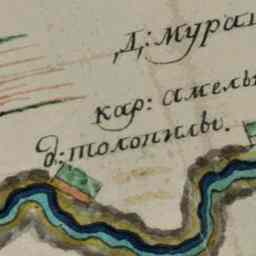 Д: Мура
кар: амель
д: толопилы.